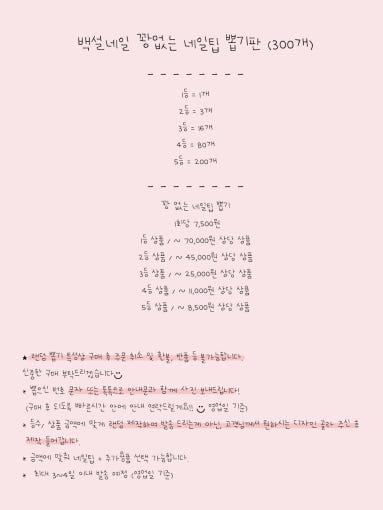 백설네일 꽝없는 네일팁 뽑기판 (300개)
1등 = 1개
2등 = 3개
3등 = 16개
4등 = 80개
5등 = 200개
꽝 없는 네일팁 뽑기
1회당 7,500원
1등 상품 / ~ 70,000원 상당 상품
2등 상품 / ~ 45,000원 상당 상품
3등 상품 / ~ 25,000원 상당 상품
4등 상품 / ~ 11,000원 상당 상품
5등 상품 / ~ 8,500원 상당 상품
★ 랜덤 뽑기 특성상 구매 후 주문 취소 및 환불, 반품 등 불가능합니다.
신중한 구매 부탁드리겠습니다
* 뽑으신 번호 문자 또는 톡톡으로 안내문과 함께 사진 보내드립니다!
(구매 후 되도록 빠른시간 안에 안내 연락드릴게요!! 영업일 기준)
* 등수, 상품 금액에 맞게 랜덤 제작하여 발송 드리는게 아닌, 고객님께서 원하시는 디자인 골라 주신 후
제작 들어갑니다.
* 금액에 맞춰 네일팁 + 추가용품 선택 가능합니다.
* 최대 3~4일 이내 발송 예정 (영업일 기준)